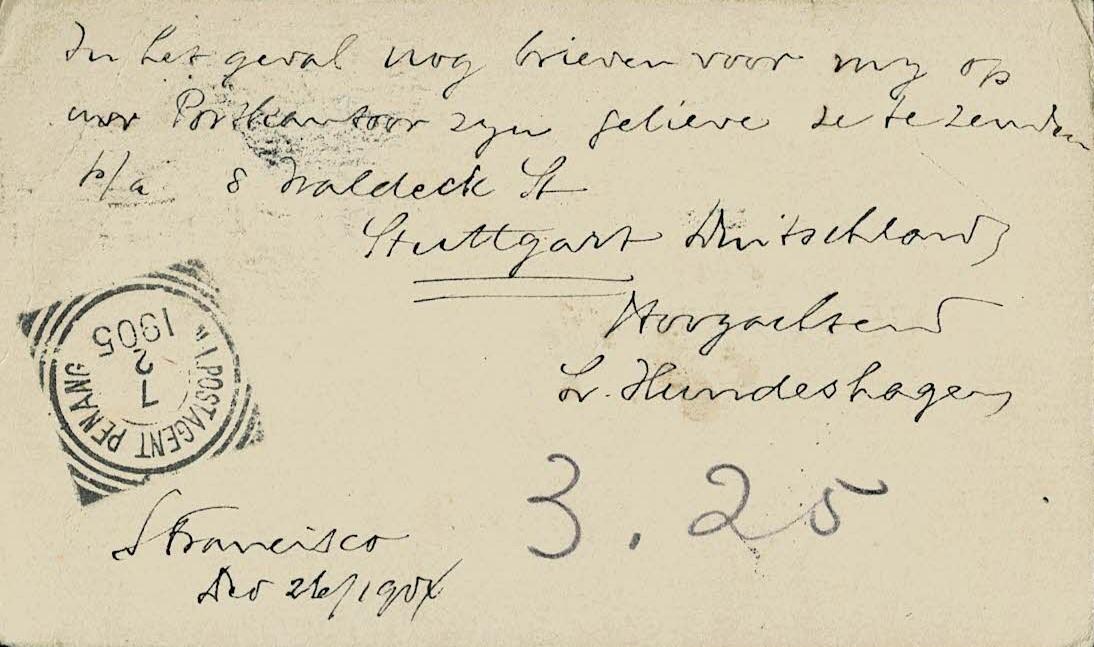 In het geval nog brieven voor my op
uw Postkantoor zyn gelieve ze te zenden
p/a 8 Waldeck St
Stuttgart Duitschland
Hoogachtend
Dr. Hundeshagen
N.I. POSTAGENT PENANG
7
2
1905
3.25
S Francisco
Dec 26/1904